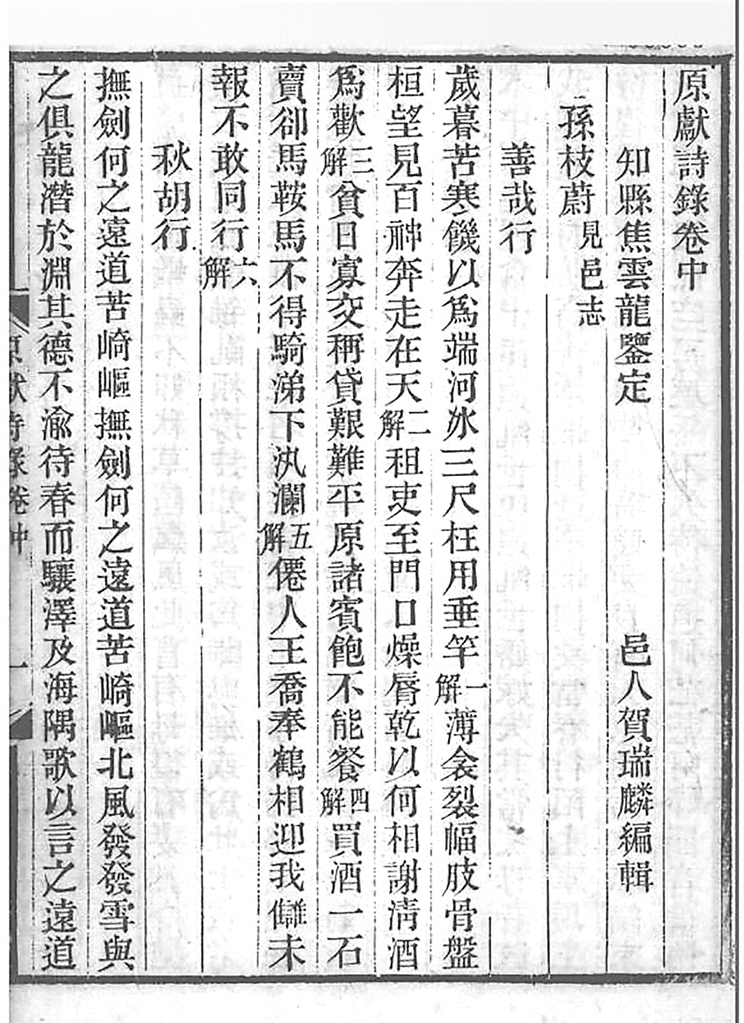 原獻詩錄卷中
知縣焦雲龍鑒定　邑人賀瑞麟編輯
孫枝蔚見邑志
善哉行
歲暮苦寒饑以爲端河冰三尺枉用垂竿一解薄衾裂幅肢骨盤
桓望見百神奔走在天二解租吏至門口燥脣乾以何相謝淸酒
爲歡三解貧日寡交稱貸艱難平原諸賓飽不能餐四解買酒一石
賣卻馬鞍馬不得騎涕下汍瀾五解僊人王喬奉鶴相迎我讎未
報不敢同行六解
秋胡行
撫劍何之遠道苦崎嶇撫劍何之遠道苦崎嶇北風發發雪與
之俱龍潛於淵其德不渝待春而驤澤及海隅歌以言之遠道
原獻詩錄卷中　一